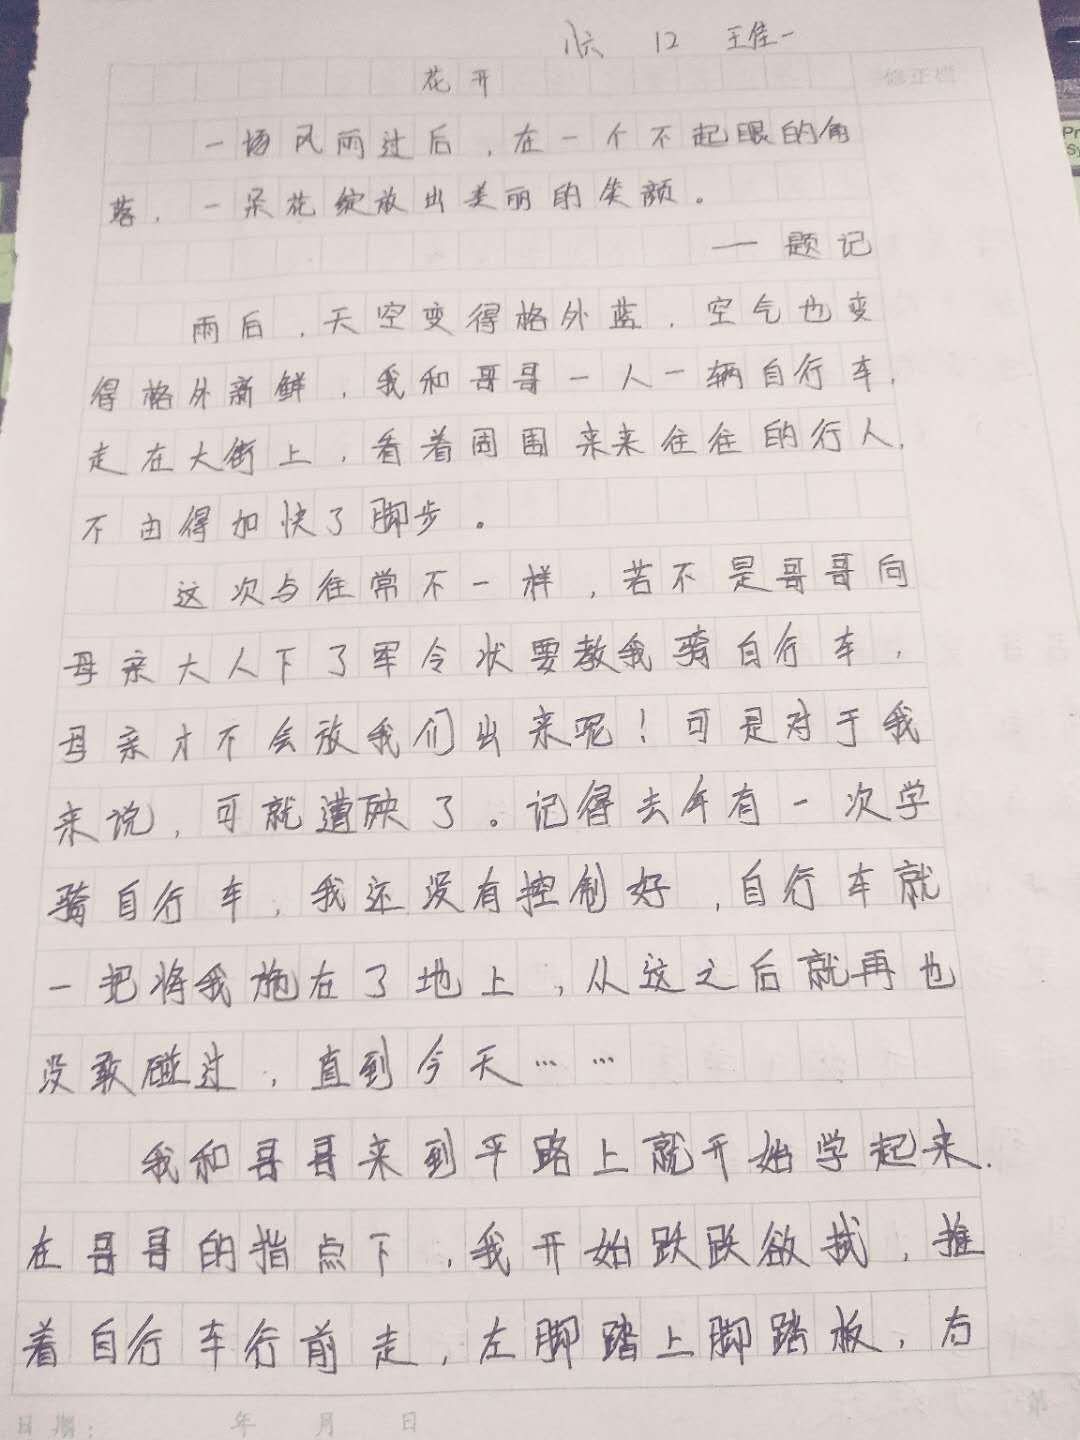 12 王佳一
花开
修正栏
一场风雨过后，在一个不起眼的角
落，一朵花绽放出美丽的笑颜。
——题记
雨后，天空变得格外蓝，空气也变
得格外新鲜，我和哥哥一人一辆自行车，
走在大街上，看着周围来来往往的行人，
不由得加快了脚步。
这次与往常不一样，若不是哥哥向
母亲大人下了军令状要教我骑自行车，
母亲才不会放我们出来呢！可是对于我
来说，可就遭殃了。记得去年有一次学
骑自行车，我还没有控制好，自行车就
一把将我拖在了地上，从这之后就再也
没敢碰过，直到今天……
我和哥哥来到平路上就开始学起来．
在哥哥的指点下，我开始跃跃欲拭，推
着自行车行前走，左脚踏上脚踏板，右
日期： 年 月 日
第